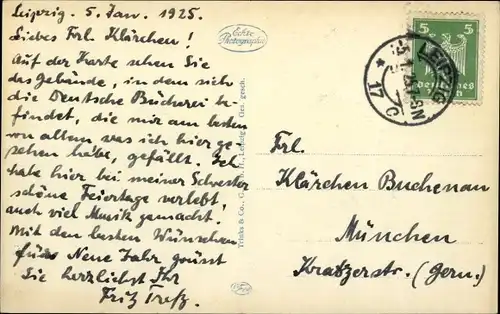 Leipzig. 5. Jan. 1925.
Liebes Frl. Klärchen!
Auf der Karte sehen Sie
das Gebäude, in dem sich
die Deutsche Bücherei be-
findet, die mir am besten
von allem, was ich hier ge-
sehen habe, gefällt. Ich
habe hier bei meiner Schwester
schöne Feiertage verlebt,
auch viel Musik gemacht.
Mit den besten Wünschen
fürs Neue Jahr grüsst
Sie herzlichst Ihr
Fritz
Echte
Photographie
Trinks & Co., G. m. b. H., Leipzig Ges. gesch.
5 5
Deutsches
Reich
LEIPZIG
* 17
Frl.
Klärchen Buchenau
München
Kratzerstr. (Gern.)